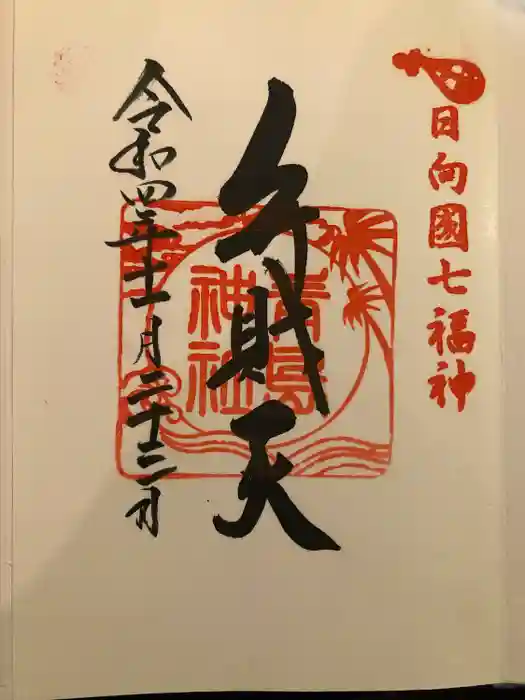 日向國七福神
弁財天
青島
神社
令和四年十一月二十三日